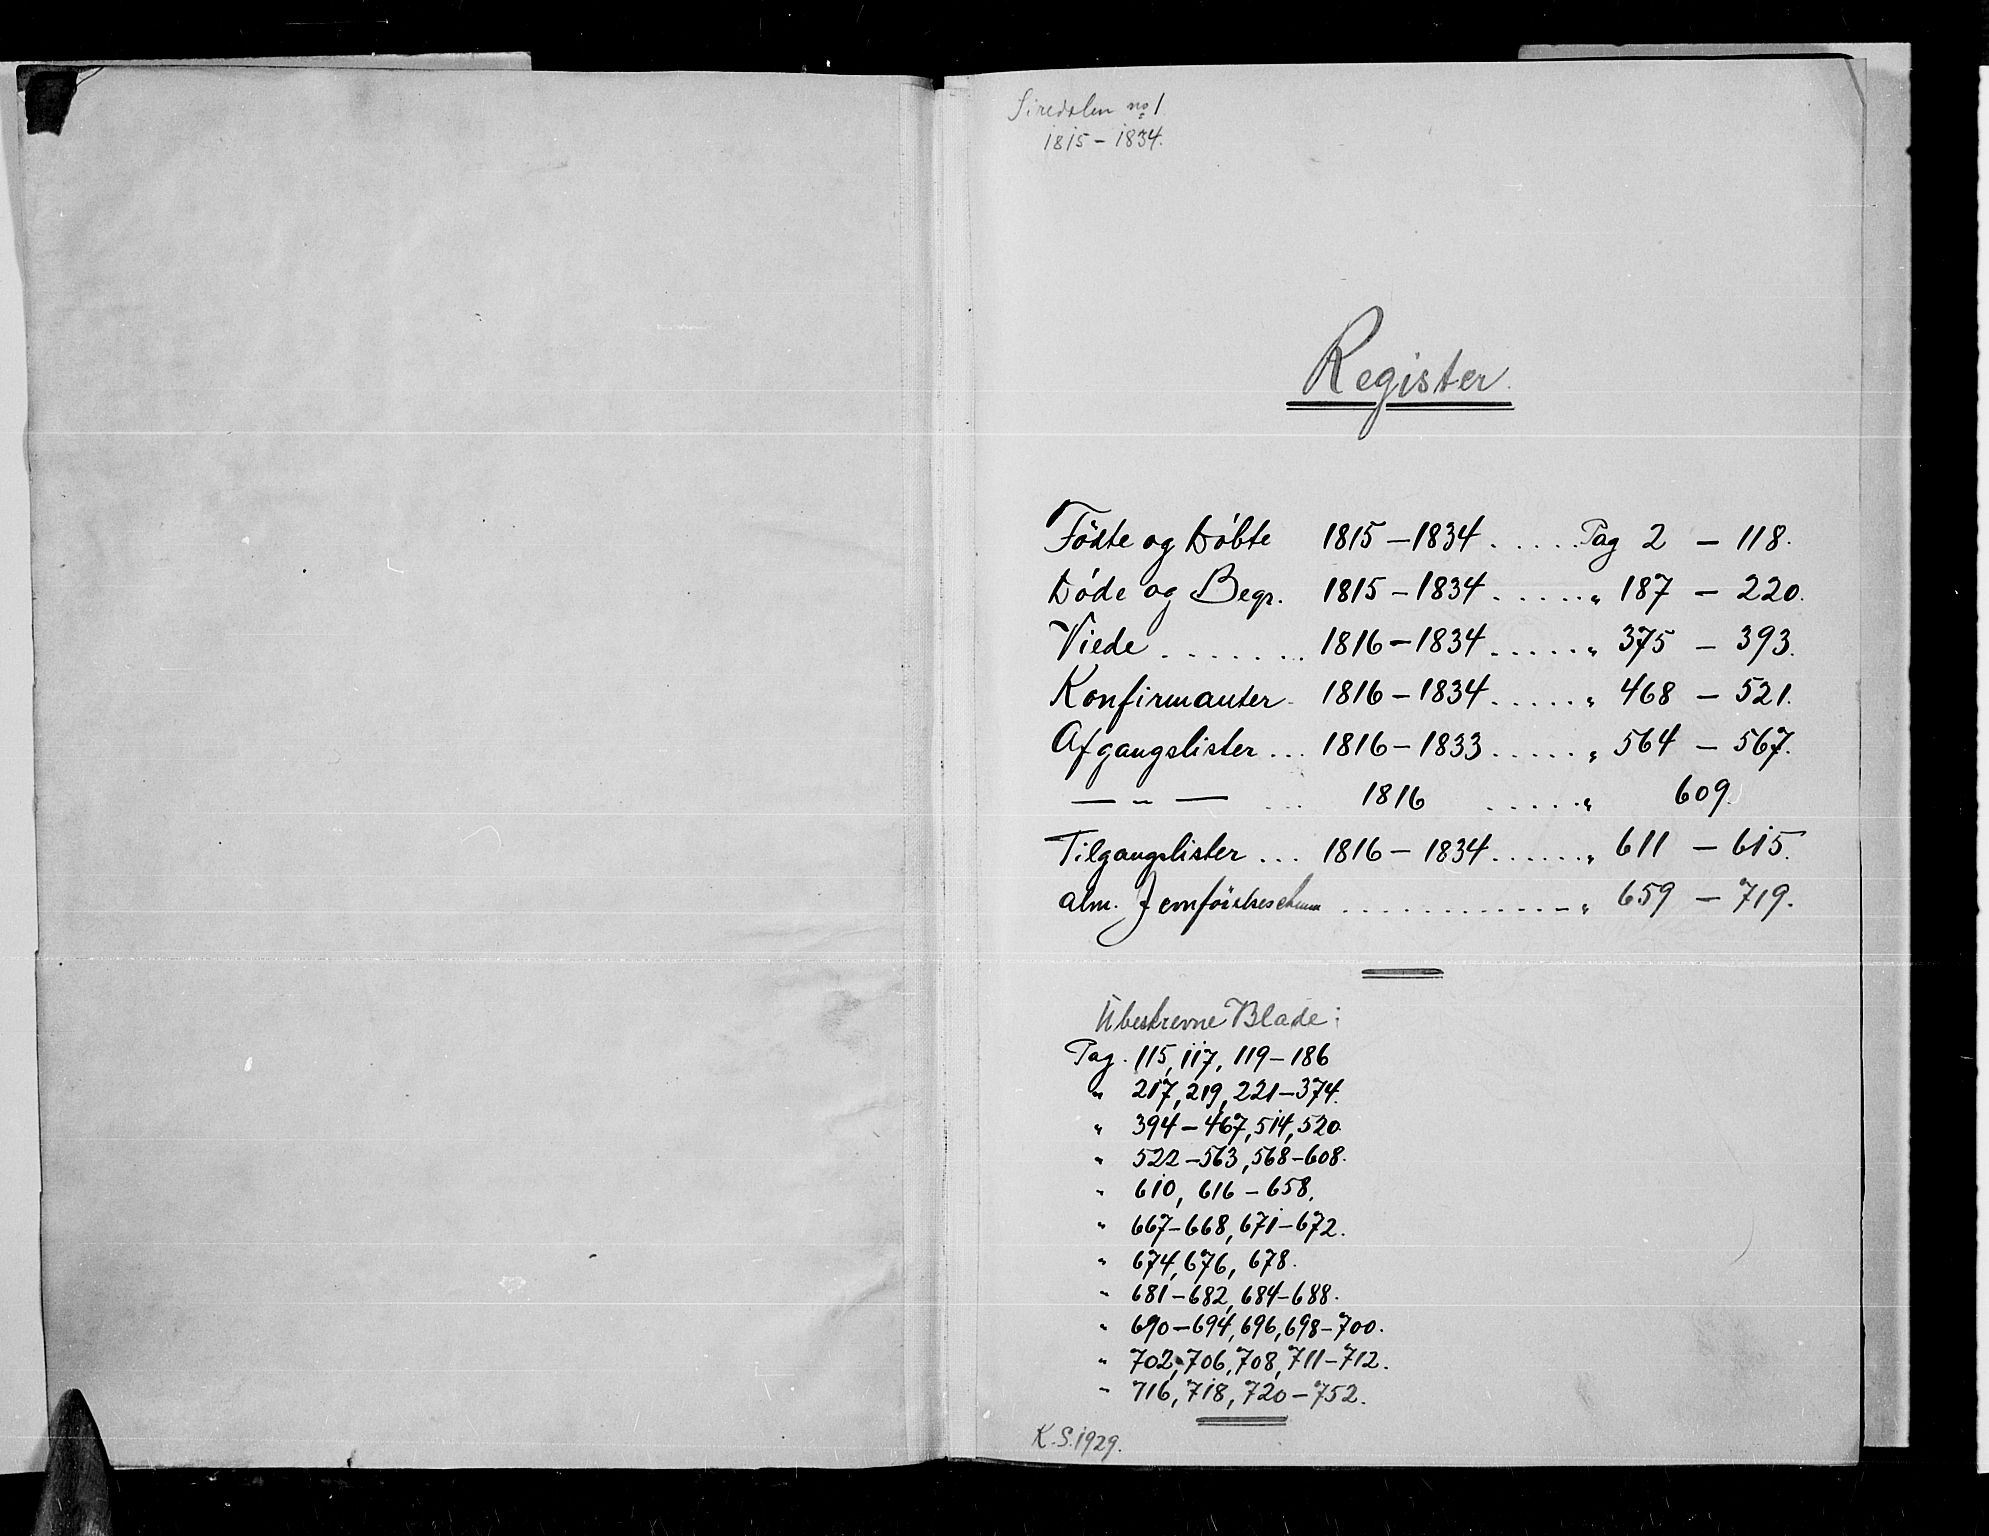 Siredalen no 1
1815 – 1834.
Register.
Födte og Döbte 1815 – 1834 . . . . . Pag 2 – 118.
Döde og Begr. 1815 – 1834 . . . . . " 187 – 220.
Viede . . . . . . . 1816 – 1834 . . . . . " 375 – 393.
Konfirmanter. 1816 – 1834 . . . . . " 468 – 521.
Afgangslister . . . 1816 – 1833 . . . . . " 564 – 567.
— " — . . . 1816 . . . . . " 609.
Tilgangslister . . . 1816 – 1834 . . . . . . " 611 – 615.
alm. Jemförelses . . . . . . . . . . . . . " 659 – 719.
Ubeskrevne Blade:
Pag. 115, 117, 119 – 186
" 217, 219, 221 – 374.
" 394 – 467, 514, 520.
" 522 – 563, 568 – 608.
" 610, 616 – 658.
" 667 – 668, 671 – 672.
" 674, 676, 678.
" 681 – 682, 684 – 688.
" 690 – 694, 696, 698 – 700.
" 702, 706, 708, 711 – 712.
" 716, 718, 720 – 752.
K. S. 1929.